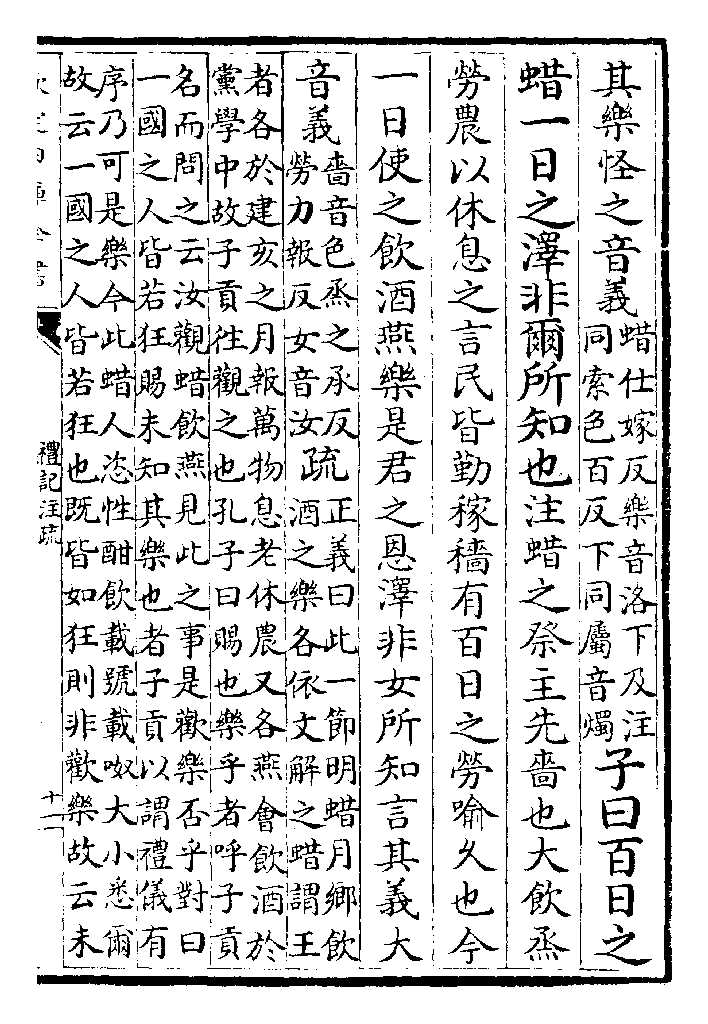 其樂怪之音義蜡仕嫁反樂音洛下及注
同索色百反下同屬音燭子曰百日之
蜡一日之澤非爾所知也注蜡之祭主先嗇也大飲烝
勞農以休息之言民皆勤稼穡有百日之勞喻久也今
一日使之飲酒燕樂是君之恩澤非女所知言其義大
音義嗇音色烝之承反
勞力報反女音汝疏正義曰此一節明蜡月鄉飲
酒之樂各依文解之蜡謂王
者各於建亥之月報萬物息老休農又各燕會飲酒於
黨學中故子貢往觀之也孔子曰賜也樂乎者呼子貢
名而問之云汝觀蜡飲燕見此之事是歡樂否乎對曰
一國之人皆若狂賜未知其樂也者子貢以謂禮儀有
序乃可是樂今此蜡人恣性酣飲載號載呶大小悉爾
故云一國之人皆若狂也既皆如狂則非歡樂故云未
禮記注疏